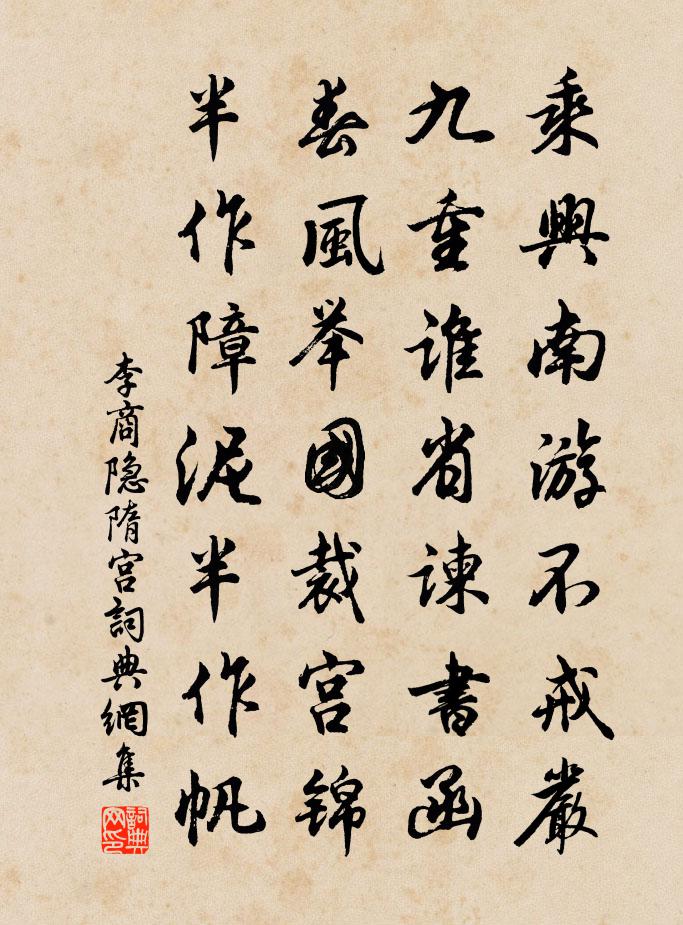 乘興南游不戒嚴
九重誰省諫書函
春風举國裁宫锦
半作障泥半作帆
李商隐隋宫詞典網集
詞典网印